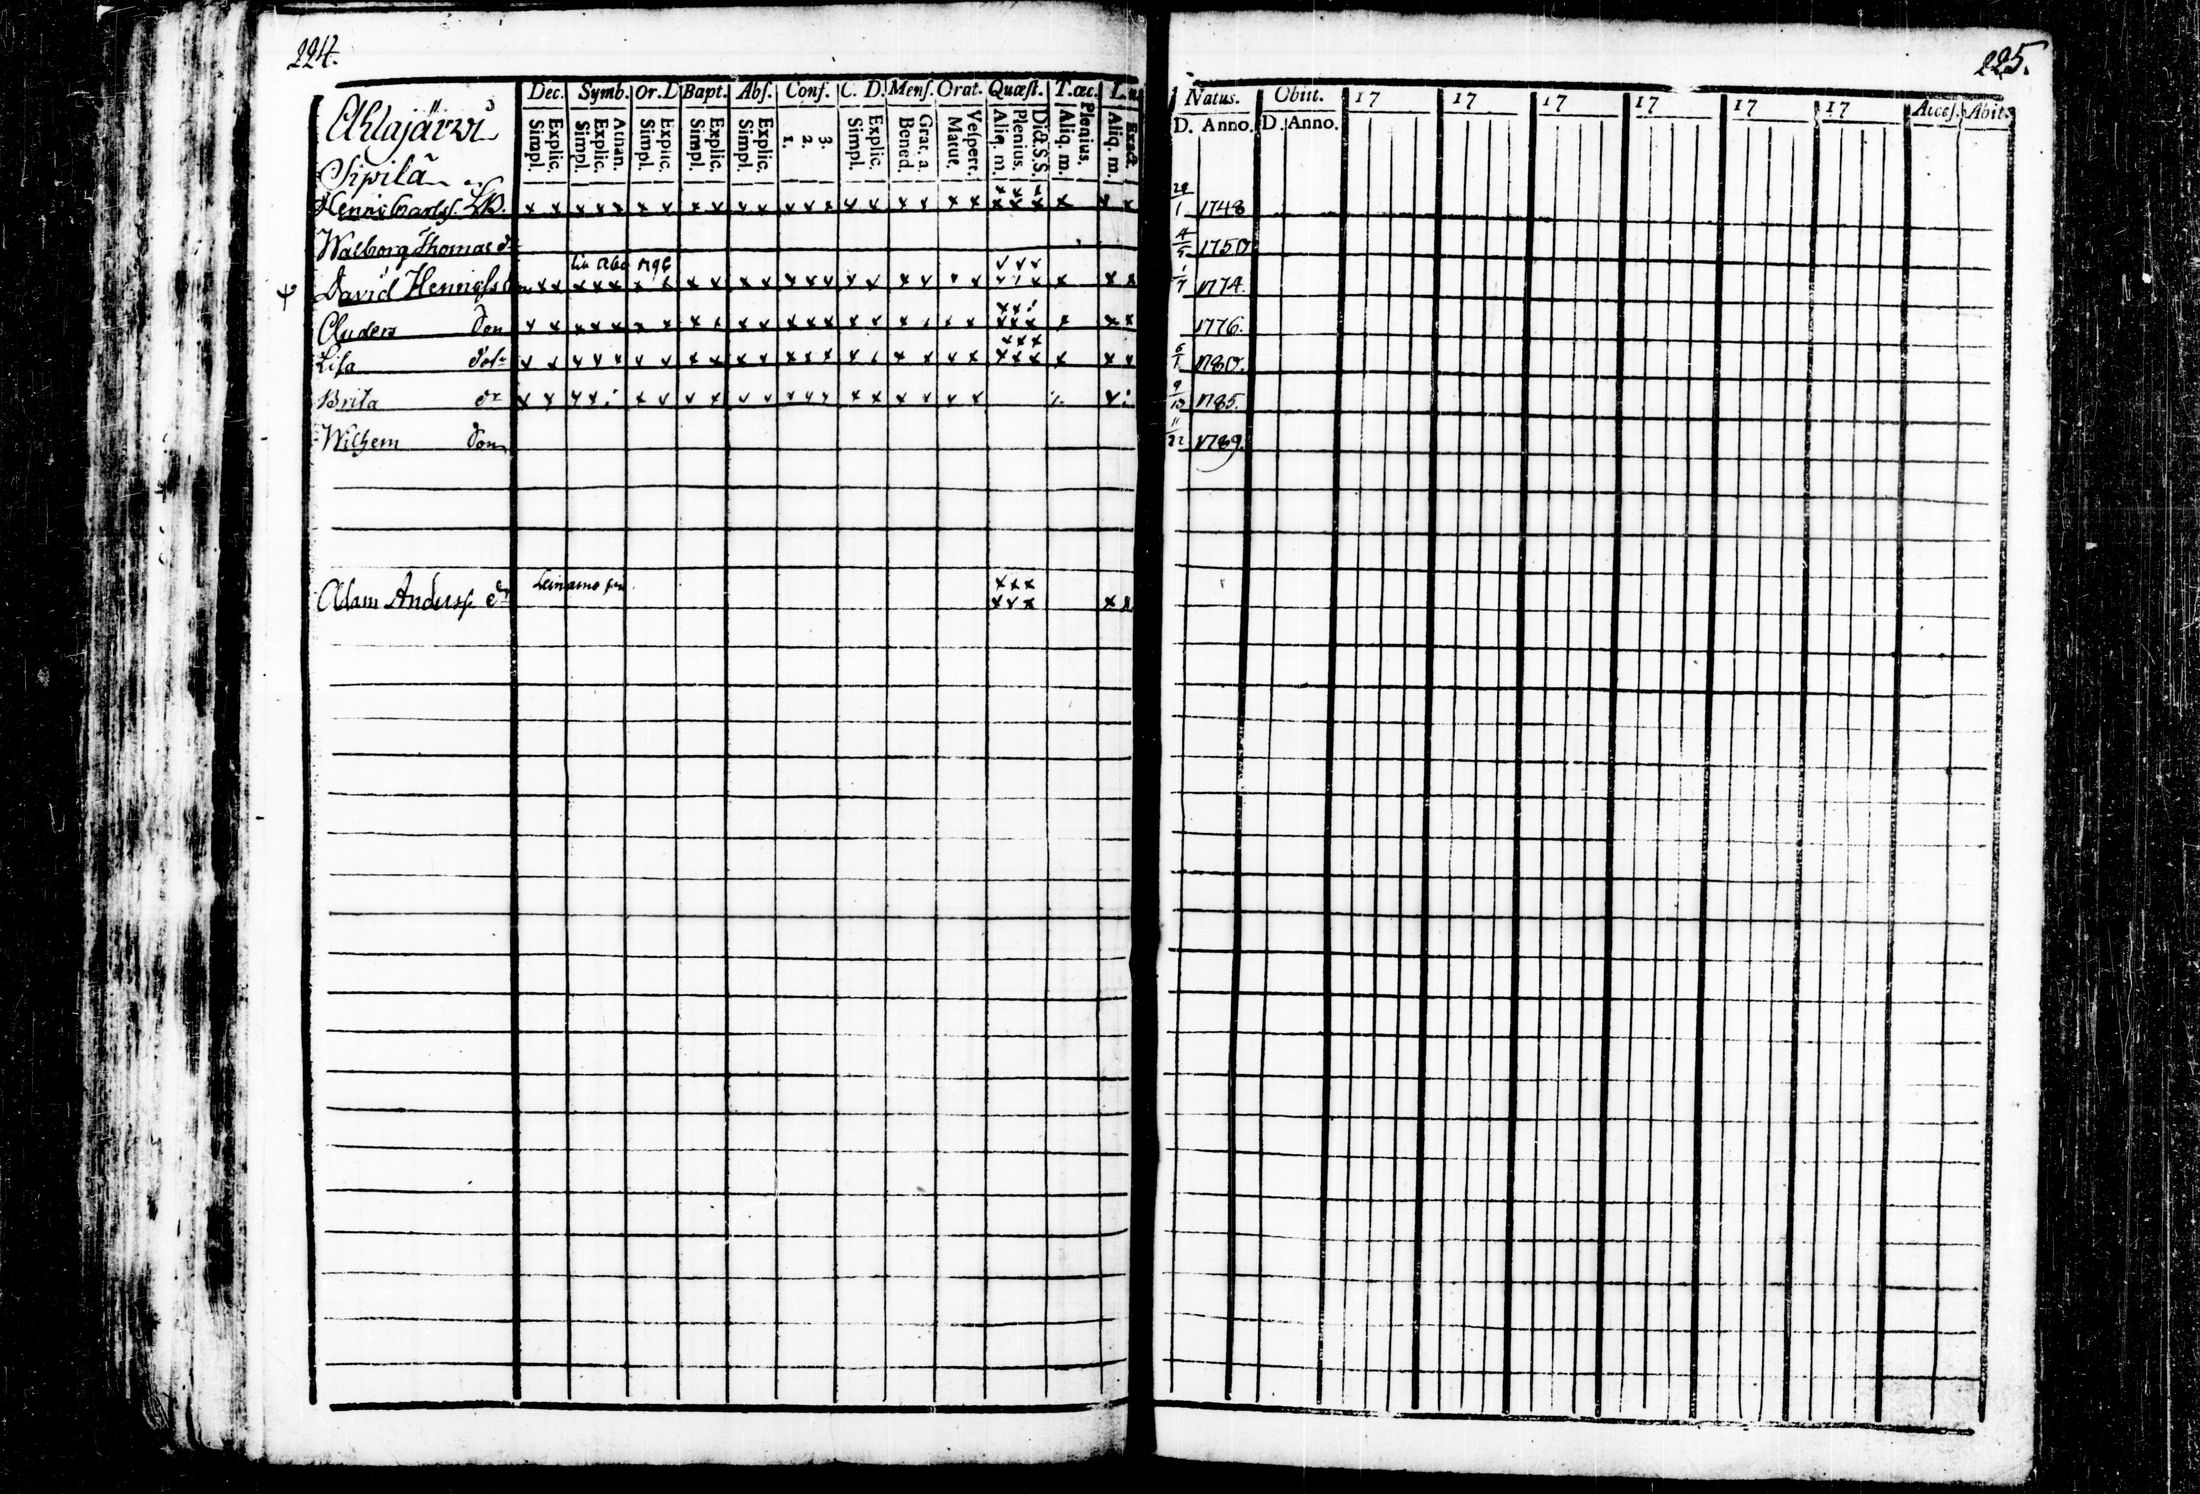 224.
225.
Dec. Symb. Or. D Bapt. Abs. Conf. C. D. Mens. Orat. Quæst. T. œc. L.
Simpl. Explic. Simpl. Explic. Athan. Simpl. Explic. Simpl. Explic. Simpl. Explic. 1. 2. 3. Simpl. Explic. Bened. Grat. a. Matut. Vespert. Aliq. m. Plenius. Dict. S.S. Aliq. m. Plenius. Aliq. m. Exact.
Natus. Obiit. 17 17 17 17 17 17 Acces. Abit.
D. Anno. D. Anno.
Ahlajärwi
Sipilä
Henric Carlss. 1748
Walborg Thomæ dr 4/5 1750
1796
David Henrichsson 1/7 1774.
Anders Son 1776.
Lisa dotr 6/1 1780.
Brita dr 9/13 1785.
Wilhem Son 11/22 1789.
Adam Anderss